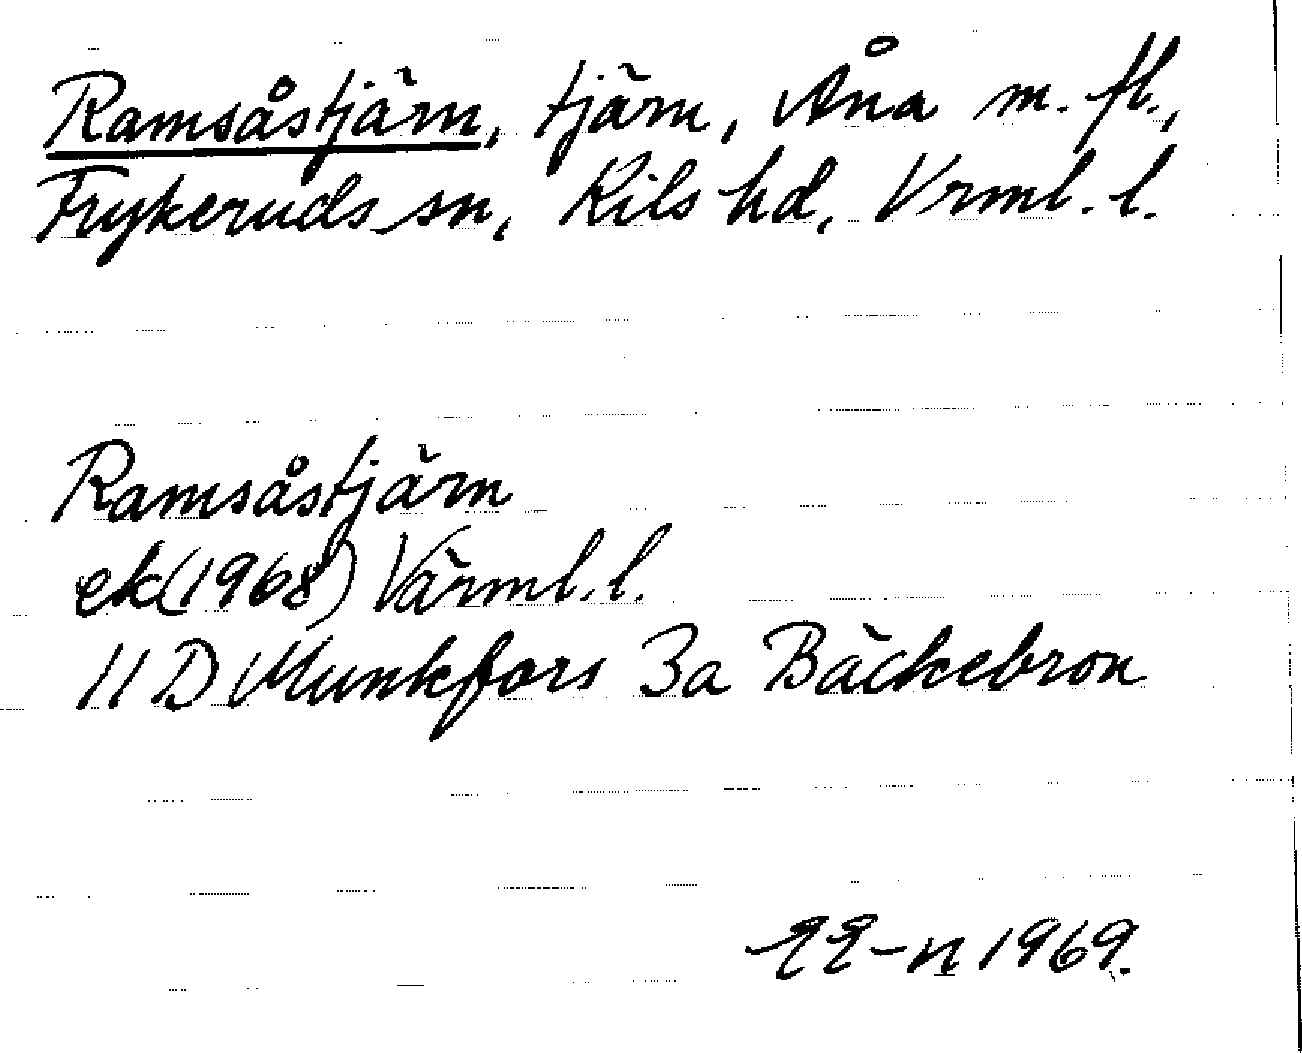 Ramsåstjärn, tjärn, Åna m. fl.,
Frykeruds sn, Kils hd, Vrml. l.
Ramsåstjärn
ek (1968) Värml. l.
11 D Munkfors 3a Bäckebron
1969.